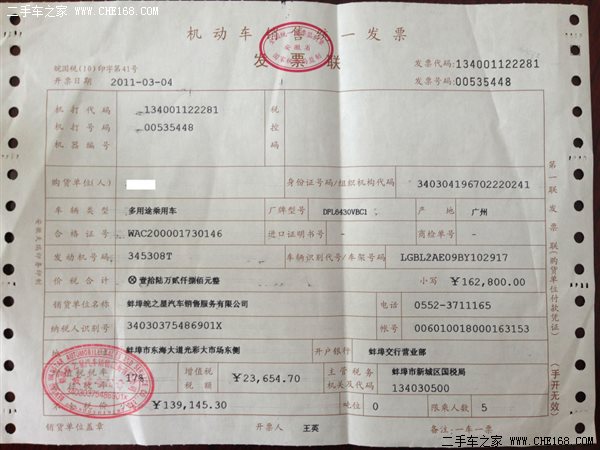 二手车之家
WWW.CHE168.COM
WWW.CHE168.COM 二手车之家
机动车销售统一发票
发票联
皖国税(10)印字第41号
开票日期 2011-03-04
发票代码:134001122281
发票号码:00535448
机打代码 134001122281
机打号码 00535448
机器编号
税控码
购货单位(人) 身份证号码/组织机构代码 340304196702220241
车辆类型 多用途乘用车 厂牌型号 DFL6430VBC1 产地 广州
合格证号 WAC200001730146 进口证明书号 - 商检单号 -
发动机号码 345308T 车辆识别代号/车架号码 LGBL2AE09BY102917
价税合计 ⊗壹拾陆万贰仟捌佰元整 小写 ￥162,800.00
销货单位名称 蚌埠皖之星汽车销售服务有限公司 电话 0552-3711165
纳税人识别号 34030375486901X 帐号 006010018000163153
蚌埠市东海大道光彩大市场东侧 开户银行 蚌埠交行营业部
17% 增值税税额 ￥23,654.70 主管税务机关及代码 蚌埠市新城区国税局 134030500
￥139,145.30 吨位 0 限乘人数 5
销货单位盖章 开票人 王英 备注:一车一票
第一联 发票联 (购货单位付款凭证) (手开无效)
34030375486901X
WWW.CHE168.COM
二手车之家 WWW.CHE168.COM